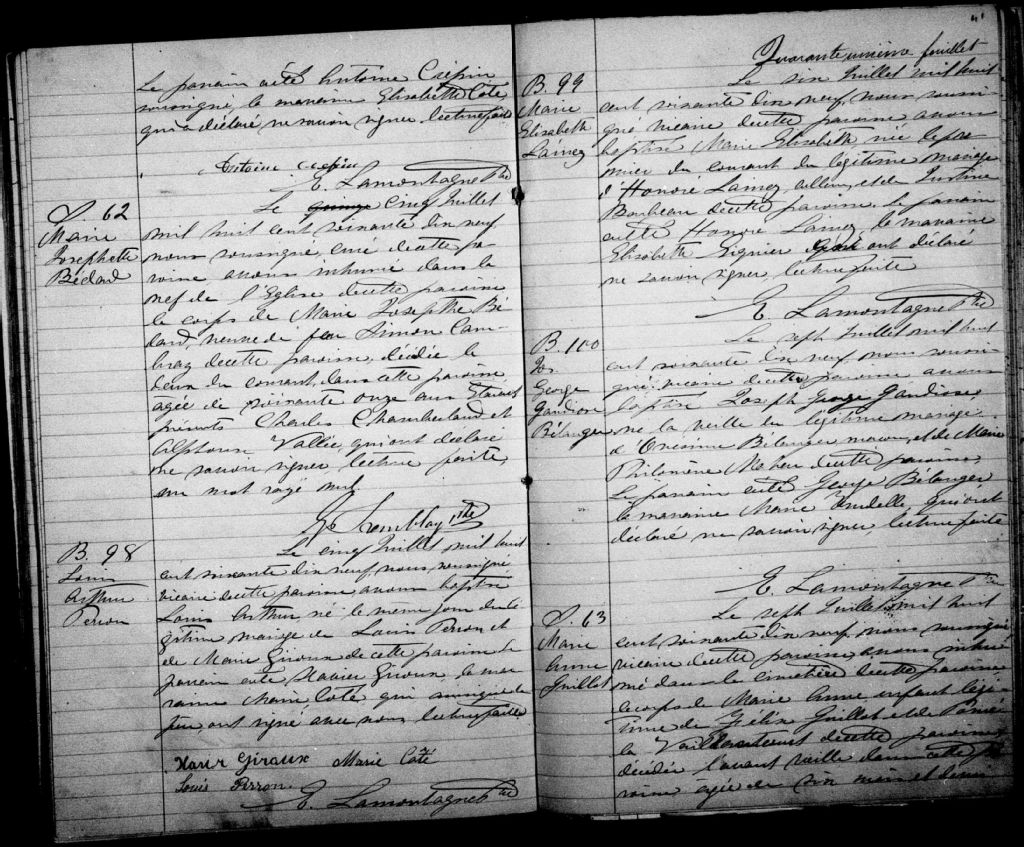 Le parrain a été Antoine Crépin
soussigné, la marraine Elisabeth Coté
qui a déclaré ne savoir signer. Lecture faite
Antoine Crépin
E. Lamontagne Ptre
S. 62
Marie
Josephette
Bédard
Le quinze cinq Juillet
mil huit cent soixante dix neuf
nous soussigné, curé de cette pa-
roisse avons inhumé dans la
nef de l'Eglise de cette paroisse
le corps de Marie Josephte Bé-
dard, veuve de feu Simon Cam-
bray de cette paroisse, décédée le
deux du courant, dans cette paroisse
agée de soixante onze ans. Etaient
présents Charles Chamberland et
Alphonse Vallée, qui ont déclaré
ne savoir signer, lecture faite,
un mot rayé nul
Tremblay Ptre
B. 98
Louis
Arthur
Perron
Le cinq Juillet mil huit
cent soixante dix neuf, nous, soussigné
vicaire de cette paroisse avons baptisé
Louis Arthur, né le même jour du lé-
gitime mariage de Louis Perron et
de Marie Giroux de cette paroisse. Le
parrain a été Xavier Giroux, la mar-
raine Marie Coté, qui ainsi que le
père, ont signé avec nous, lecture faite
Xavier Giroux Marie Coté
Louis Perron
E. Lamontagne Ptre
41
Quarante unième feuillet
B. 99
Marie
Elisabeth
Lainez
Le six Juillet mil huit
cent soixante dix neuf, nous soussi-
gné vicaire de cette paroisse avons
baptisé Marie Elisabeth née le pre-
mier du courant du légitime mariage
d'Honoré Lainez, tailleur, et de Justine
Barbeau de cette paroisse. Le parrain
a été Honoré Lainez, la marraine
Elisabeth Signier qui ont déclaré
ne savoir signer, lecture faite
E. Lamontagne Ptre
B. 100
Jos.
George
Gaudiose
Bélanger
Le sept Juillet mil huit
cent soixante dix neuf, nous soussi-
gné, vicaire de cette paroisse avons
baptisé Joseph George Gaudiose,
né la veille du légitime mariage
d'Onésime Bélanger, maçon, et de Marie
Philomène Maheu de cette paroisse.
Le parrain a été George Bélanger
la marraine Marie Drudelle, qui ont
déclaré ne savoir signer, lecture faite
E. Lamontagne Ptre
S. 63
Marie
Anne
Guillot
Le sept Juillet mil huit
cent soixante dix neuf, nous soussigné
vicaire de cette paroisse, avons inhu-
mé dans le cimetière de cette paroisse,
le corps de Marie Anne enfant légi-
time de Félix Guillot et de
la Vaillancourt de cette paroisse,
décédée l'avant veille dans cette pa-
roisse agée de six mois et demi